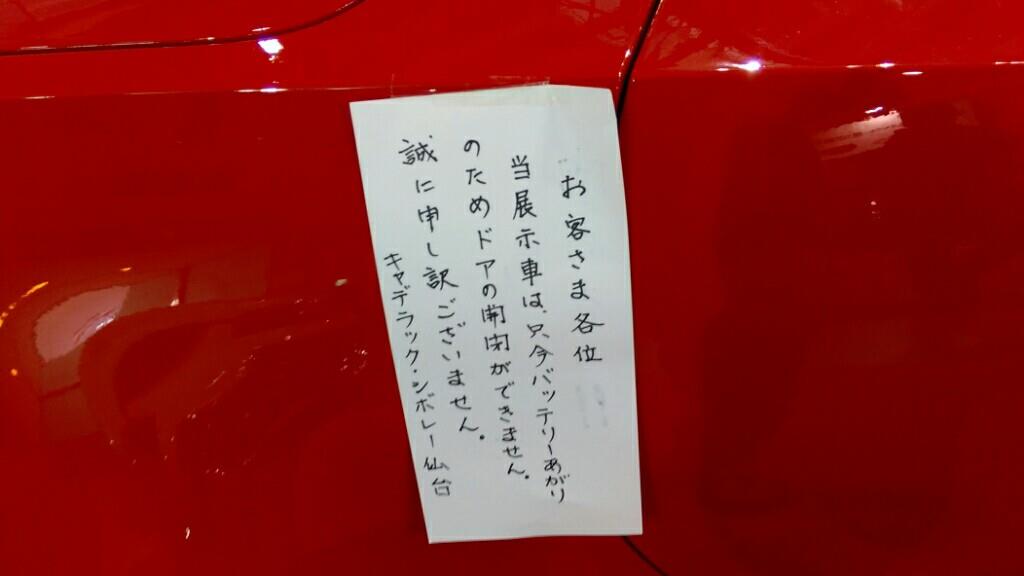 お客さま各位
当展示車は、只今バッテリーあがり
のためドアの開閉ができません。
誠に申し訳ございません。
キャデラック・シボレー仙台